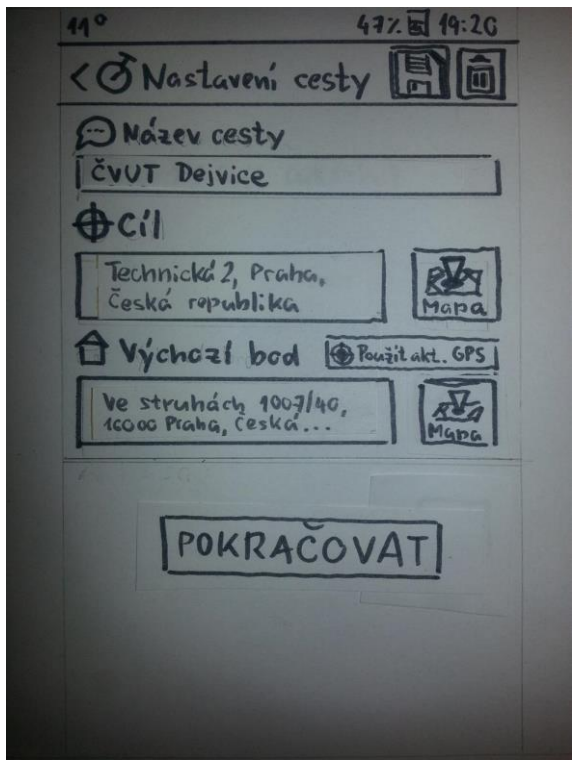 11° 47% 19:20
< Nastavení cesty
Název cesty
ČVUT Dejvice
Cíl
Technická 2, Praha,
Česká republika
Mapa
Výchozí bod
Použít akt. GPS
Ve struhách 1007/40,
16000 Praha, Česká...
Mapa
POKRAČOVAT